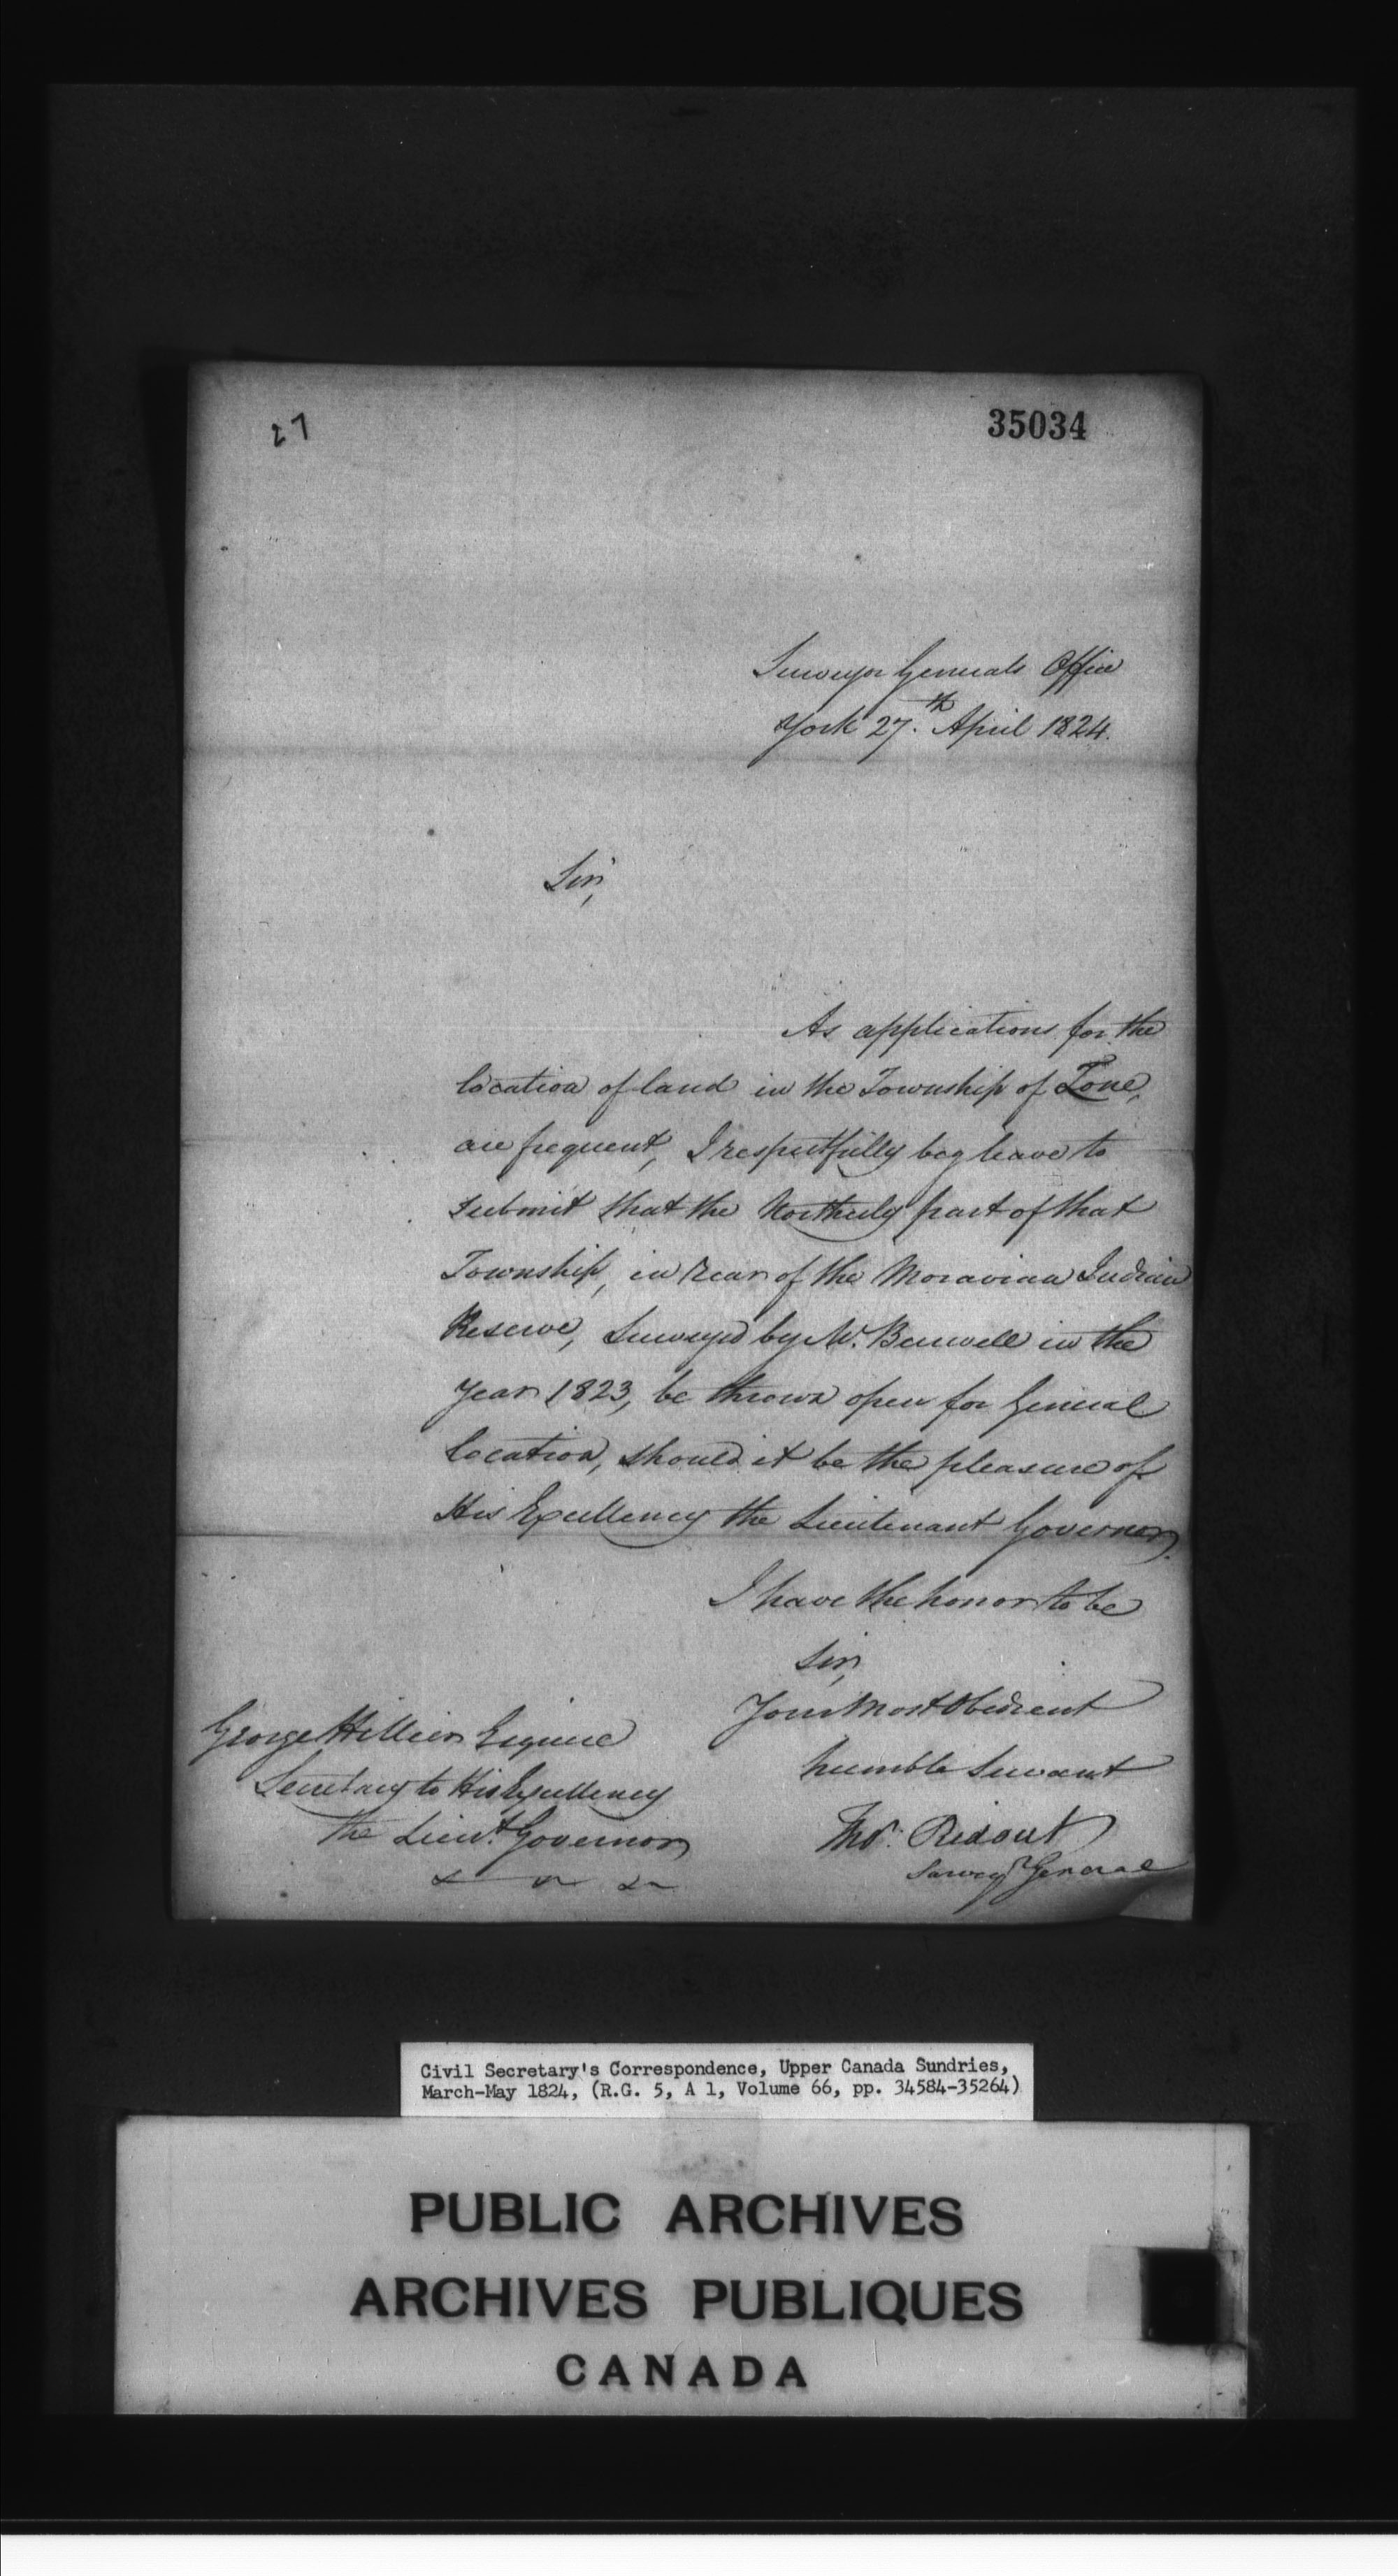 27
35034
Surveyor Generals Office
York 27.th April 1824.
Sir,
As applications for the
location of land in the Township of Zone,
are frequent, I respectfully beg leave to
submit that the Northerly part of that
Township, in rear of the Moravian Indian
Reserve, Surveyed by Mr. Burwell in the
Year 1823, be thrown open for General
location, should it be the pleasure of
His Excellency the Lieutenant Governor.
I have the honor to be
Sir,
Your Most Obedient
humble Servant
Thos. Ridout
Surveyr General
George Hillier Esquire
Secretary to His Excellency
the Lieut. Governor
Civil Secretary's Correspondence, Upper Canada Sundries,
March-May 1824, (R.G. 5, A 1, Volume 66, pp. 34584-35264)
PUBLIC ARCHIVES
ARCHIVES PUBLIQUES
CANADA